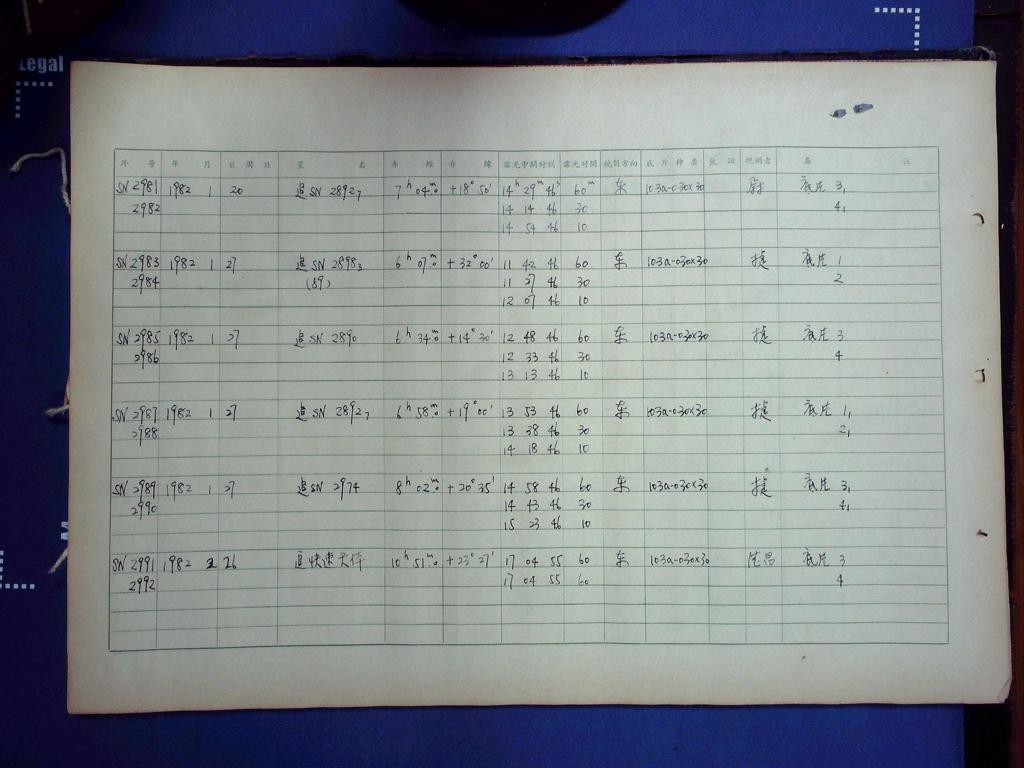 Legal
序 号 年 月 日 周 日 星 名 赤 經 赤 緯 露光中間時刻 露光时間 鏡筒方向 底 片 种 类 觀測者 备 註
SN 2981 1982 1 20 追 SN 2892, 7ʰ 04ᵐ.0 +18° 50′ 14ʰ 29ᵐ 46ˢ 60ᵐ 东 103a-0 30×30 尉 底片 3,
2982 14 14 46 30 4,
14 54 46 10
SN 2983 1982 1 27 追 SN 2898₃ 6ʰ 07ᵐ.0 +32° 00′ 11 42 46 60 东 103a-0 30×30 捷 底片 1
2984 (89) 11 27 46 30 2
12 07 46 10
SN 2985 1982 1 27 追 SN 2890 6ʰ 34ᵐ.0 +14° 30′ 12 48 46 60 东 103a-0 30×30 捷 底片 3
2986 12 33 46 30 4
13 13 46 10
SN 2987 1982 1 27 追 SN 2892, 6ʰ 58ᵐ.0 +19° 00′ 13 53 46 60 东 103a-0 30×30 捷 底片 1,
2988 13 38 46 30 2,
14 18 46 10
SN 2989 1982 1 27 追 SN 2974 8ʰ 02ᵐ.0 +20° 35′ 14 58 46 60 东 103a-0 30×30 捷 底片 3,
2990 14 43 46 30 4,
15 23 46 10
SN 2991 1982 2 26 追 快速天体 10ʰ 51ᵐ.0 +23° 27′ 17 04 55 60 东 103a-0 30×30 昌 底片 3
2992 17 04 55 60 4